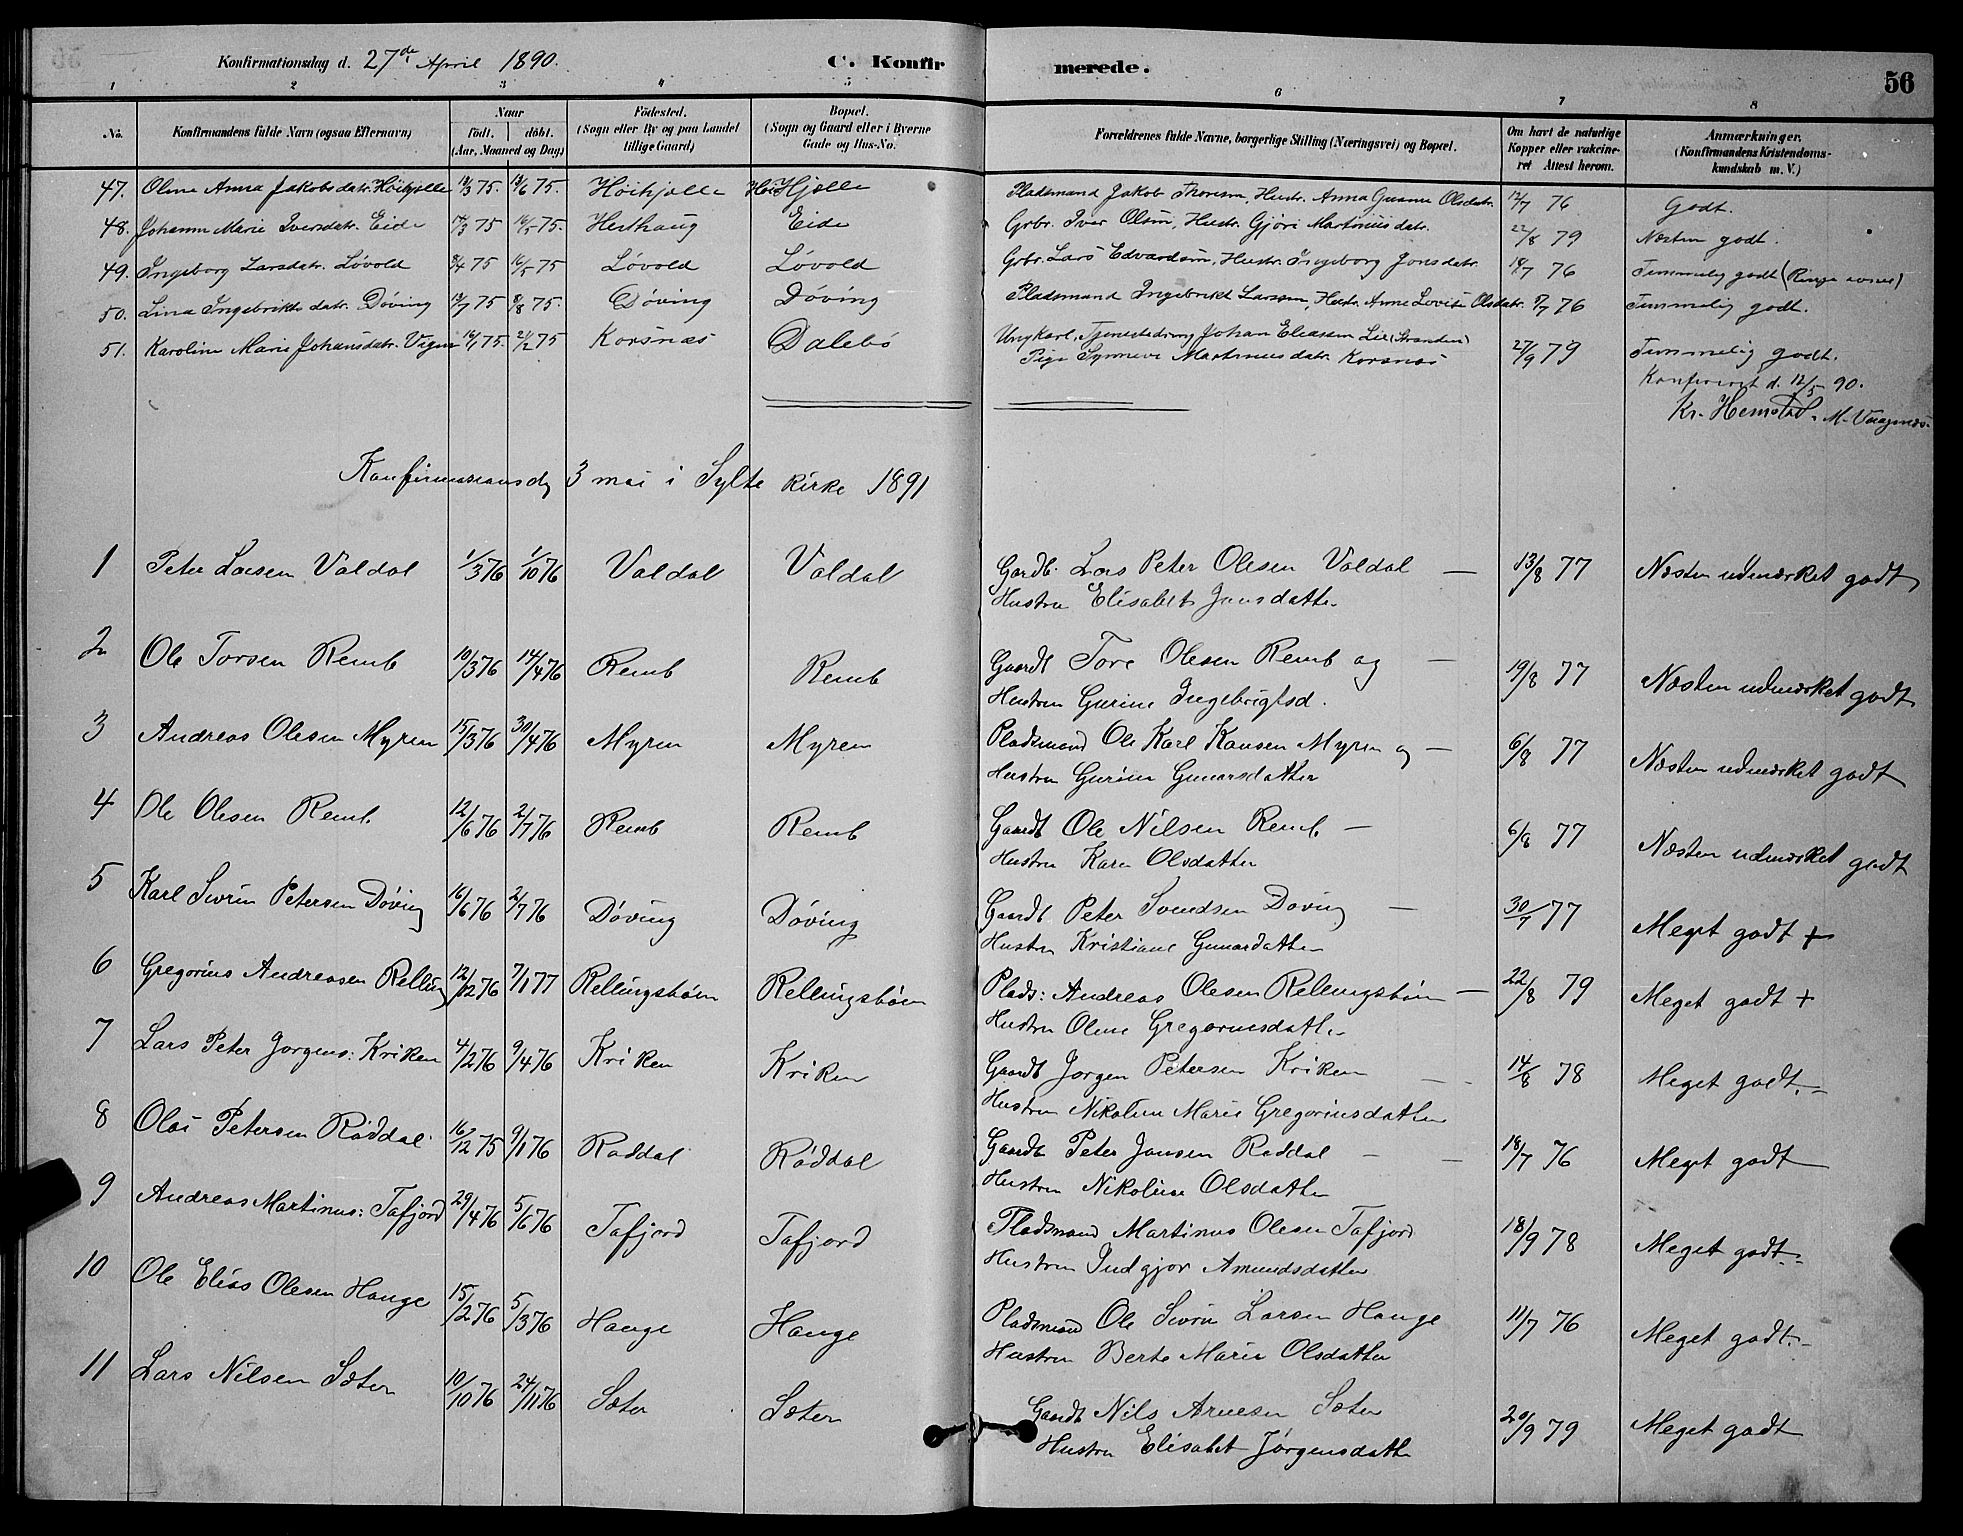 Konfirmationsdag d. 27de April 1890. C. Konfirmerede. 56
1 2 3 4 5 6 7 8
No. Konfirmandens fulde Navn (ogsaa Efternavn) Naar födt. döbt. (Aar, Maaned og Dag) Födested. (Sogn eller By og paa Landet tillige Gaard) Bopæl. (Sogn og Gaard eller i Byerne Gade og Hus-No. Forældrenes fulde Navne, borgerlige Stilling (Næringsvei) og Bopæl. Om havt de naturlige Kopper eller vakcineret Attest herom. Anmærkninger. (Konfirmandens Kristendomskundskab m. V.)
47. Oline Anna Jakobsdatr. Höihjelle 75. 75. Höihjelle Hjelle Pladsmand Jakob Thoresen, Hustr. Anna Olsdatr. 12/7 76 Godt.
48. Johanne Marie Iversdatr. Eide 75 75. Eide Grbr. Iver Olsen, Hustr. Gjöri Martinusdatr. 22/8 79 Næsten godt.
49. Ingeborg Larsdatr. Lövold 75 16/5 75 Lövold Lövold Grbr. Lars Edvardsen, Hustr. Ingeborg Jonsdatr. 76 Temmelig godt
50. Lina Ingebriktsdatr. Döving 75 8/8 75. Döving Döving Pladsmand Ingebrikt Larssen, Hustr. Anne Lovise Olsdatr. 76 Temmelig godt.
51. Karoline Marie Johansdatr. 16/1 75. 21/2 75 Korsnæs Dalebö Ungkarl, Johan Eliassen Lie
Pige Synneve Martinusdatr. Korsnæs 27/9 79 Temmelig godt.
d. 12/5 90.
Kr. Hemstad.
Konfirmasionsdg 3 mai i Sylte Kirke 1891
1 Peter Larsen Valdal 1/3 76 1/10 76 Valdal Valdal Gardb. Lars Peter Olesen Valdal — 13/8 77 Næsten udmærket godt
Hustru Elisabet Jonsdatter
2 Ole Torsen Remb 10/3 76 14/4 76 Remb Remb Gaardb Tore Olesen Remb og — 19/8 77 Næsten udmærket godt
Hustru Gurine Ingebrigtsd.
3 Andreas Olesen Myren 15/3 76 30/4 76 Myren Myren Pladsmand Ole Karl Myren og — 6/8 77 Næsten udmærket godt
Hustru Gurine Gunarsdatter
4 Ole Olesen Remb. 12/6 76 2/7 76 Remb Remb Gaardb Ole Nilsen Remb — 6/8 77 Næsten udmærket godt
Hustru Karen Olsdatter
5 Karl Sivrin Petersen Döving 16/6 76 2/7 76 Döving Döving Gaardb Peter Svendsen Döving — 30/7 77 Meget godt +
Hustru Kristiane Gunardatter
6 Gregorius Andreasen Relling 12/12 76 7/1 77 Rellingsböen Rellingsböen Plads: Andreas Olesen Rellingsböen — 22/8 79 Meget godt +
Hustru Oline Gregoriusdatter
7 Lars Peter Jorgens: Kriken 4/2 76 9/4 76 Kriken Kriken Gaardb Jorgen Petersen Kriken — 14/8 78 Meget godt. —
Hustru Nikoline Marie Gregoriusdatter
8 Olai Petersen Röddal 16/12 75 9/1 76 Röddal Röddal Gaardb Peter Jonsen Röddal — — 18/7 76 Meget godt
Hustru Nikoline Olsdatter
9 Andreas Martinus: Tafjord 29/4 76 5/6 76 Tafjord Tafjord Pladsmand Martinus Olesen Tafjord 18/9 78 Meget godt. —
Hustru Indgjor Amundsdatter
10 Ole Elias Olesen Hauge 15/2 76 5/3 76 Hauge Hauge Pladsmand Ole Sivrin Larsen Hauge 11/7 76 Meget godt. —
Hustru Berte Marie Olsdatter
11 Lars Nilsen Sæter 10/10 76 24/11 76 Sæter Sæter Gaardb Nils Arnesen Sæter 20/9 79 Meget godt
Hustru Elisabet Jörgensdatter